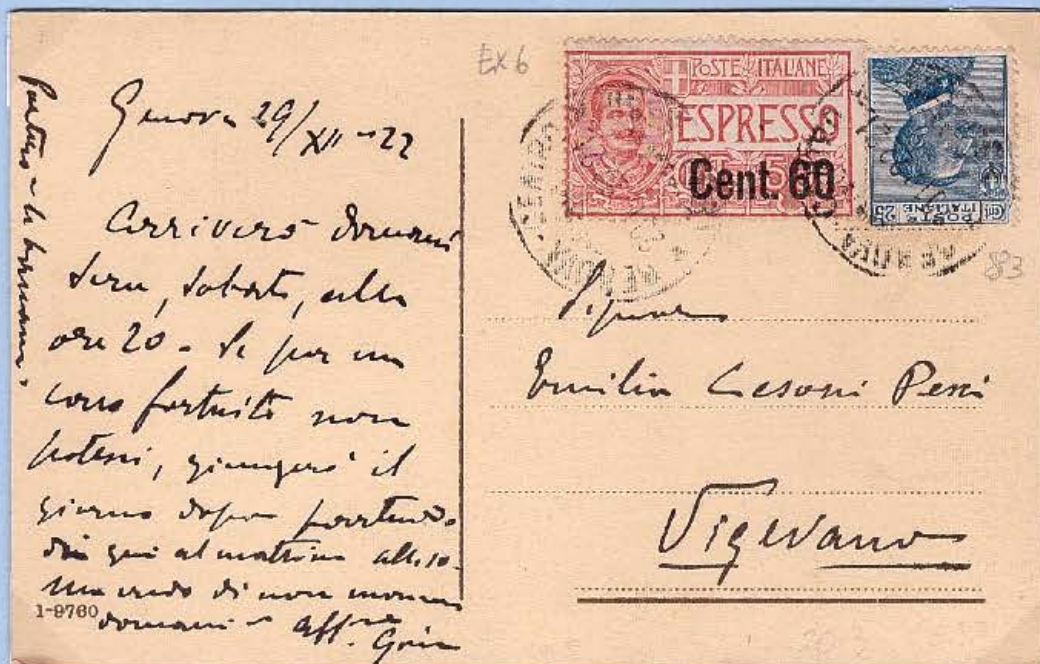 Genova 29/XII-22
Arriverò domani
sera, sabato, alle
ore 20 - Se per un
caso fortuito non
potessi, giungerò il
giorno dopo partendo
di qui al mattino alle 10.
Ma credo di non
domani - Aff.
EX 6
POSTE ITALIANE
ESPRESSO
Cent. 60
POSTE
ITALIANE
25
83
Signora
Emilia Cesoni Pessi
Vigevano
1-9760